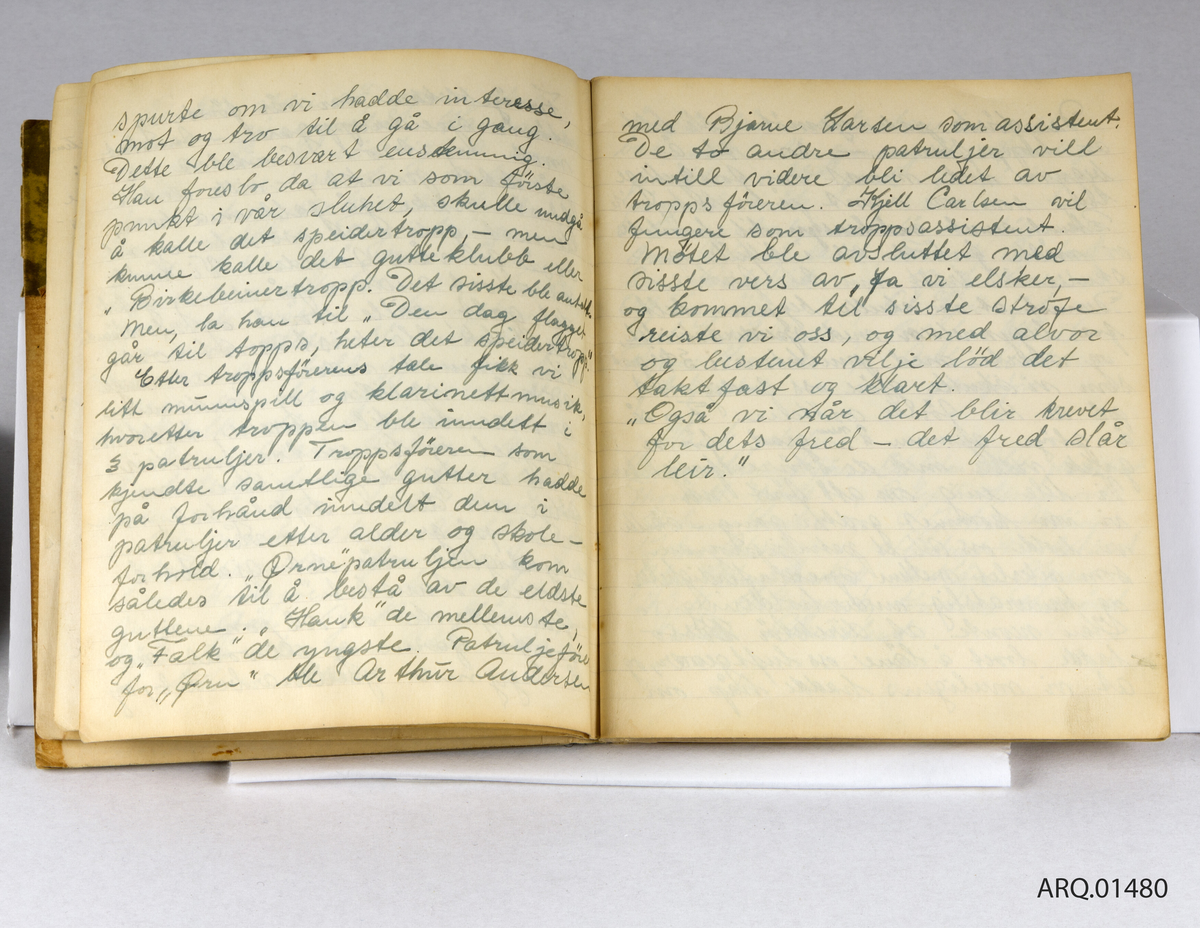 spurte om vi hadde interesse,
mot og tro til å gå i gang.
Dette ble besvart enstemmig.
Han foreslo da at vi som förste
punkt i vår sluhet, skulle undgå
å kalle det speidertropp, – men
kunne kalle det gutteklubb eller
„Birkebeinertropp. Det sisste ble antatt.
Men, la han til „Den dag flagget
går til topps, heter det speidertropp."
Etter troppsförerens tale fikk vi
litt munnspill og klarinettmusik,
hvoretter troppen ble inndelt i
3 patruljer. Troppsföreren som
kjendte samtlige gutter hadde
på forhånd inndelt dem i
patruljer etter alder og skole-
forhold. „Ørne"patruljen kom
således til å bestå av de eldste
guttene. „Hauk" de mellemste,
og „Falk" de yngste. Patruljeföre
for „Ørn" ble Arthur Andersen
med Bjarne Karsen som assistent.
De to andre patruljer vill
intill videre bli ledet av
troppsföreren. Kjell Carlsen vil
fungere som troppsassistent.
Møtet ble avsluttet med
sisste vers av „Ja vi elsker, –
og kommet til sisste strofe
reiste vi oss, og med alvor
og bestemt vilje löd det
taktfast og klart.
„Også vi når det blir krevet
for dets fred – det fred slår
leir."
ARQ.01480